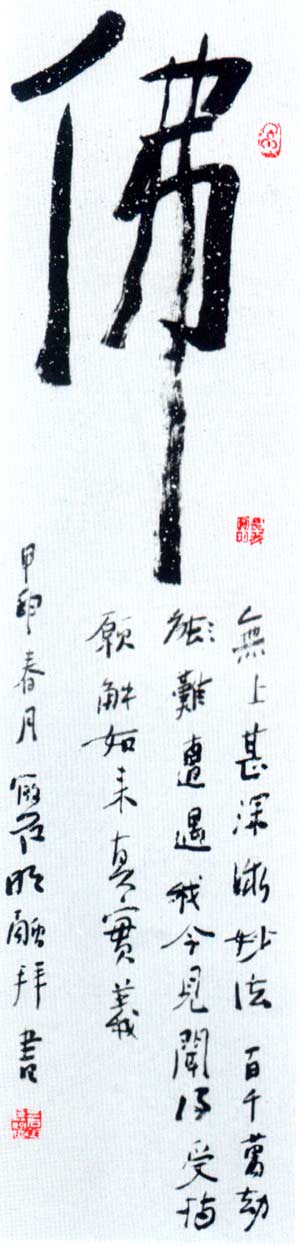 佛
無上甚深微妙法百千萬劫
難遭遇我今見聞得受持
願解如來真實義
甲申春月明融拜書